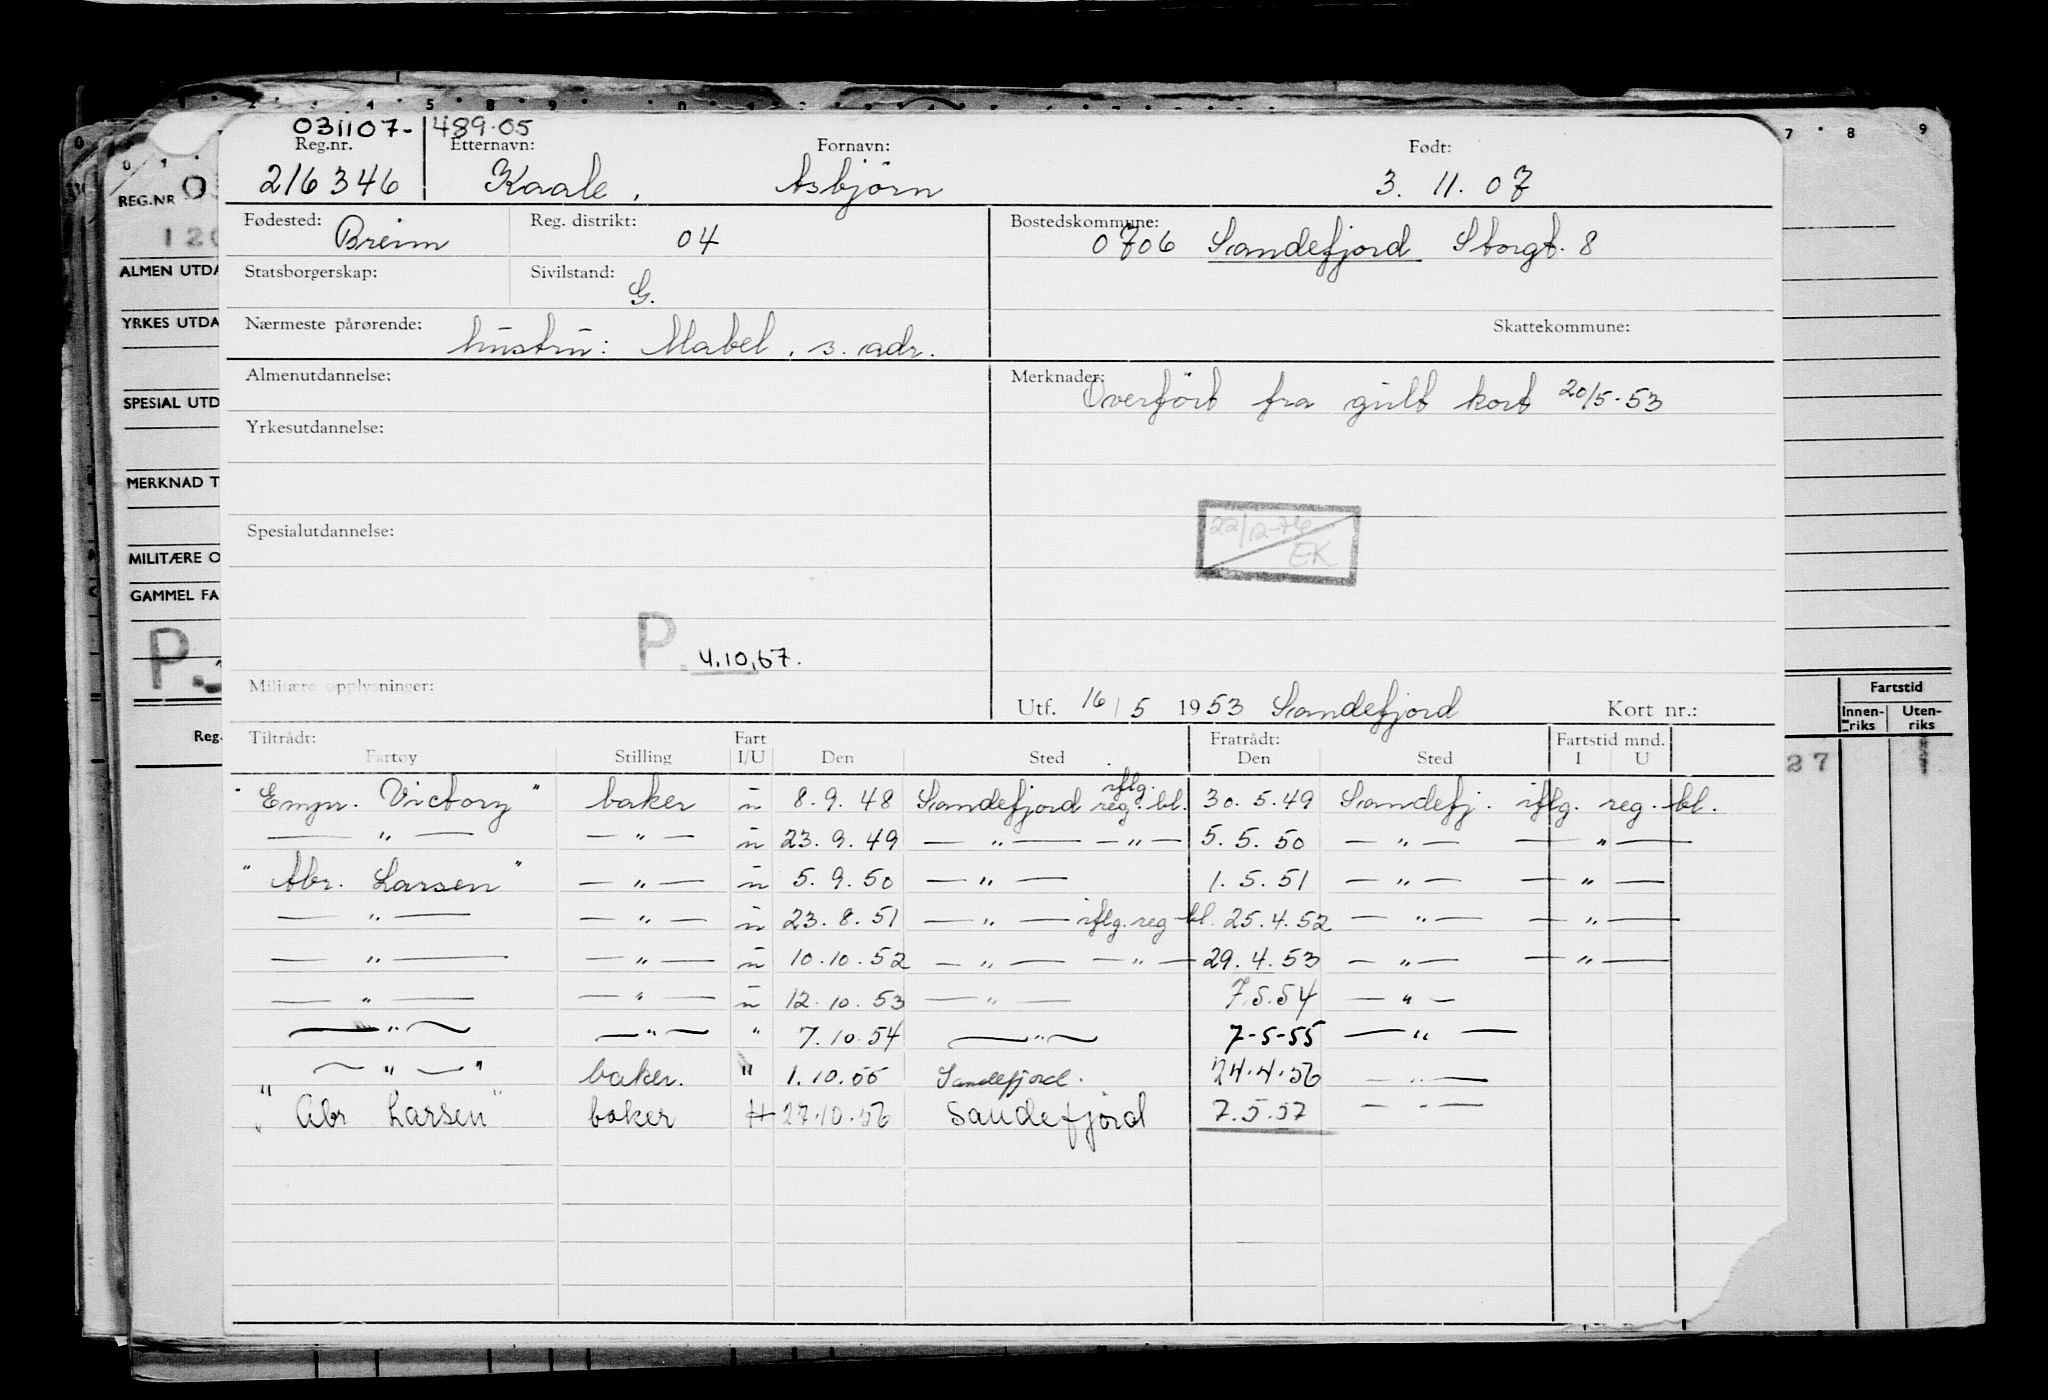 031107- 489.05
Reg.nr. Etternavn: Fornavn: Født:
216346 Kaale, Asbjörn 3. 11. 07
Fødested: Breim Reg. distrikt: 04 Bostedskommune: 0706 Sandefjord Storgt. 8
Statsborgerskap: Sivilstand: G.
Nærmeste pårørende: hustru: Mabel, s. adr. Skattekommune:
Almenutdannelse: Merknader: Overfört fra gult kort 20/5-53
Yrkesutdannelse:
22/12-76 EK
Spesialutdannelse:
P. 4.10.67.
Militære opplysninger:
Utf. 16/5 1953 Sandefjord Kort nr.:
Tiltrådt: Fart Fratrådt: Fartstid mnd.
Fartøy Stilling I/U Den Sted Den Sted I U
"Empr. Victory" baker u 8.9.48 Sandefjord iflg. reg. bl. 30.5.49 Sandefj. iflg. reg. bl.
— " — — " — u 23.9.49 — " — — " — 5.5.50 — " — — " —
"Abr. Larsen" — " — u 5.9.50 — " — 1.5.51 — " — — " —
— " — — " — u 23.8.51 — " — iflg. reg bl. 25.4.52 — " — — " —
— " — — " — u 10.10.52 — " — — " — 29.4.53 — " — — " —
— " — — " — u 12.10.53 — " — 7.5.54 — " —
— " — — " — " 7.10.54 — " — 7-5-55 — " —
— " — " baker. " 1.10.55 Sandefjord. 24.4.56 — " —
"Abr Larsen" baker 27.10.56 Sandefjord 7.5.57 — " —
REG.NR 0
120
ALMEN UTDA
YRKES UTDA
SPESIAL UTD
MERKNAD T
MILITÆRE O
GAMMEL FA
P.
Reg.
Fartstid
Innen-riks Uten-riks
27 1